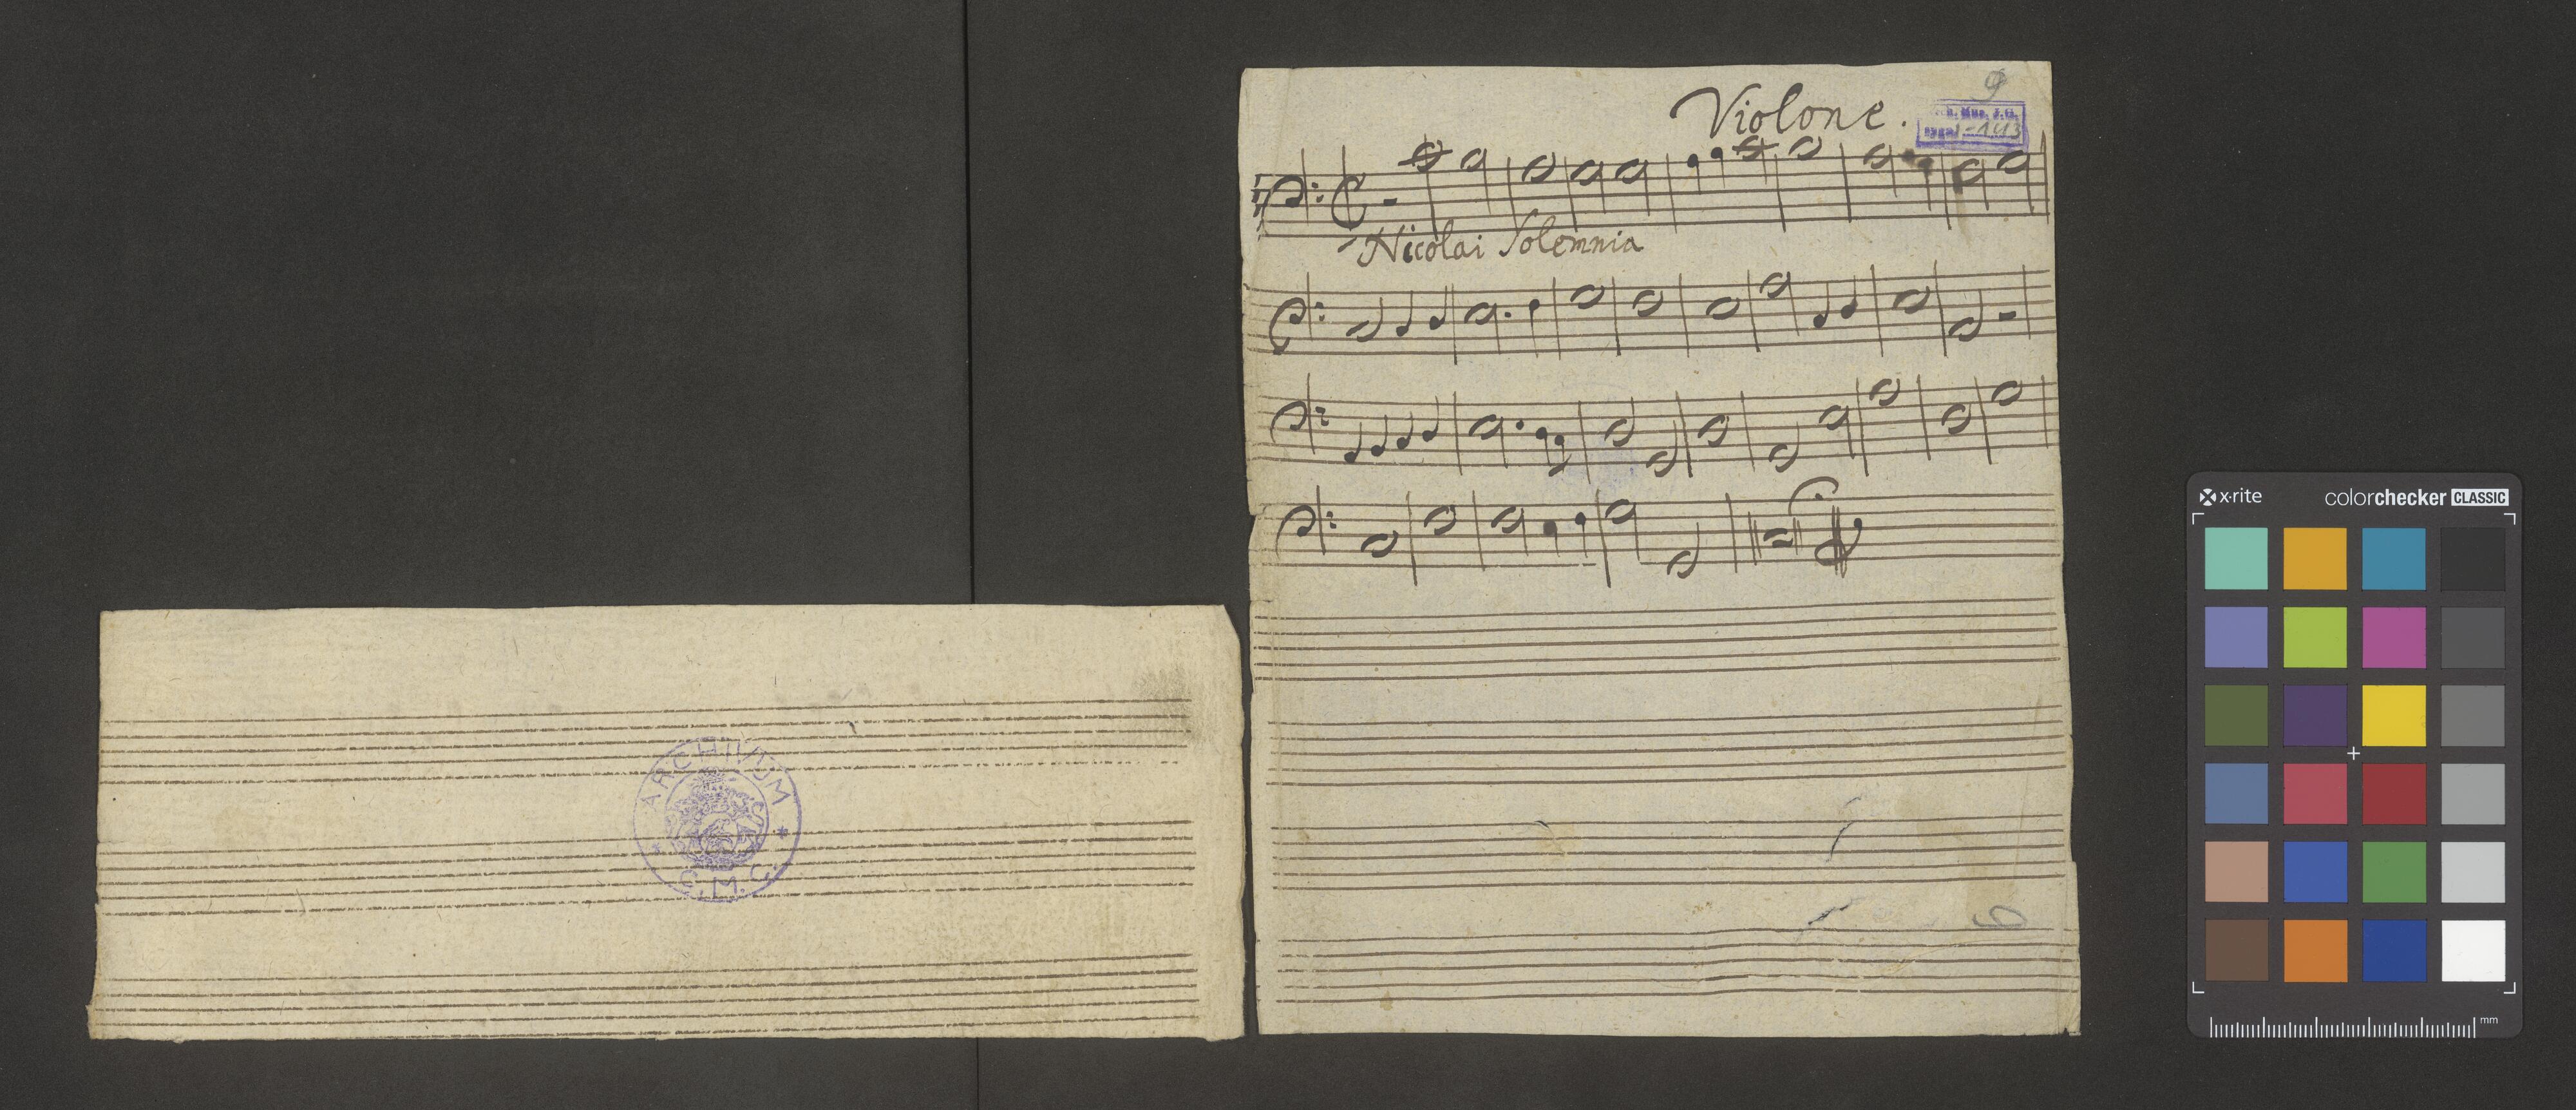 9
Violone.
Mus. J.G.
I-143
Nicolai Solemnia
ARCHIVUM
C.M.C.
x·rite colorchecker CLASSIC
mm